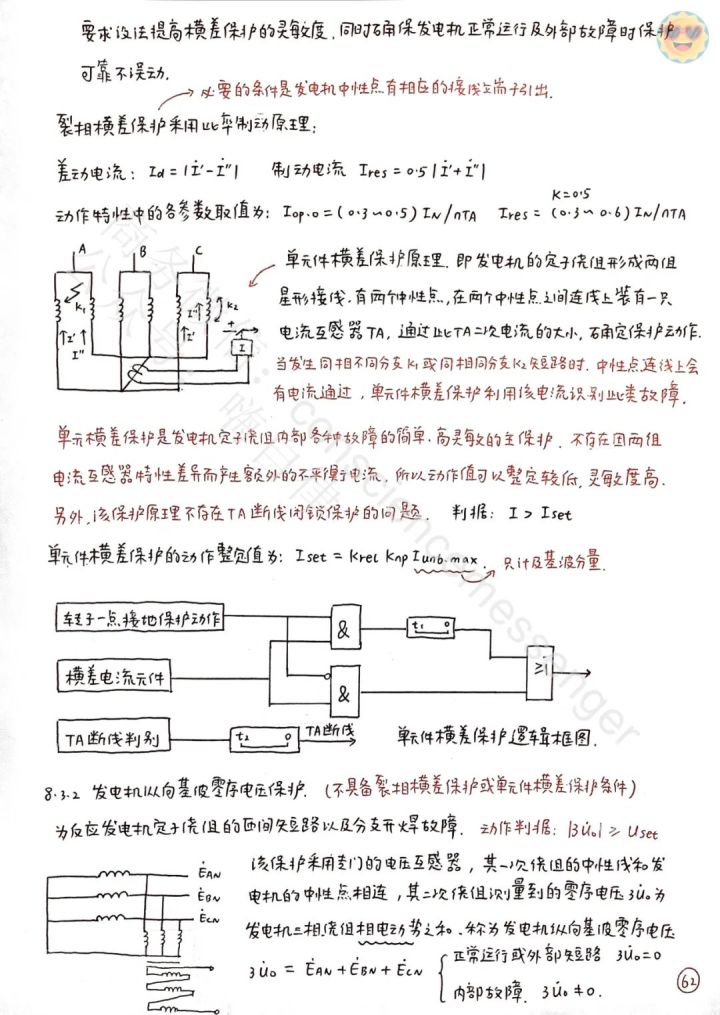 要求设法提高横差保护的灵敏度,同时确保发电机正常运行及外部故障时保护
可靠不误动.
必要的条件是发电机中性点有相应的接线端子引出.
裂相横差保护采用比率制动原理:
差动电流: Id = |İ'-İ"| 制动电流 Ires = 0.5|İ'+İ"|
K=0.5
动作特性中的各参数取值为: Iop.0=(0.3~0.5)IN/nTA Ires=(0.3~0.6)IN/nTA
A B C
K1 K2
İ' İ" İ" İ' I
单元件横差保护原理. 即发电机的定子绕组形成两组
星形接线.有两个中性点,在两个中性点之间连线上装有一只
电流互感器TA, 通过此TA二次电流的大小,确定保护动作.
当发生同相不同分支K1或同相同分支K2短路时.中性点连线上会
有电流通过,单元件横差保护利用该电流识别此类故障.
单元横差保护是发电机定子绕组内部各种故障的简单.高灵敏的主保护. 不存在因两组
电流互感器特性差异而产生额外的不平衡电流,所以动作值可以整定较低,灵敏度高.
另外,该保护原理不存在TA断线闭锁保护的问题. 判据: I > Iset
单元件横差保护的动作整定值为: Iset = Krel Knp Iunb.max. 只计及基波分量.
转子一点接地保护动作
& t1 0
横差电流元件
& ≥1
TA断线判别 t2 0 TA断线
单元件横差保护逻辑框图.
8.3.2 发电机纵向基波零序电压保护. (不具备裂相横差保护或单元件横差保护条件)
为反应发电机定子绕组的匝间短路以及分支开焊故障. 动作判据: |3U̇0| ≥ Uset
ĖAN
ĖBN
ĖCN
该保护采用专门的电压互感器,其一次绕组的中性线和发
电机的中性点相连,其二次绕组测量到的零序电压3U̇0为
发电机三相绕组相电动势之和.称为发电机纵向基波零序电压
3U̇0 = ĖAN+ĖBN+ĖCN
正常运行或外部短路 3U̇0=0
内部故障. 3U̇0≠0.
62
consciencemessenger